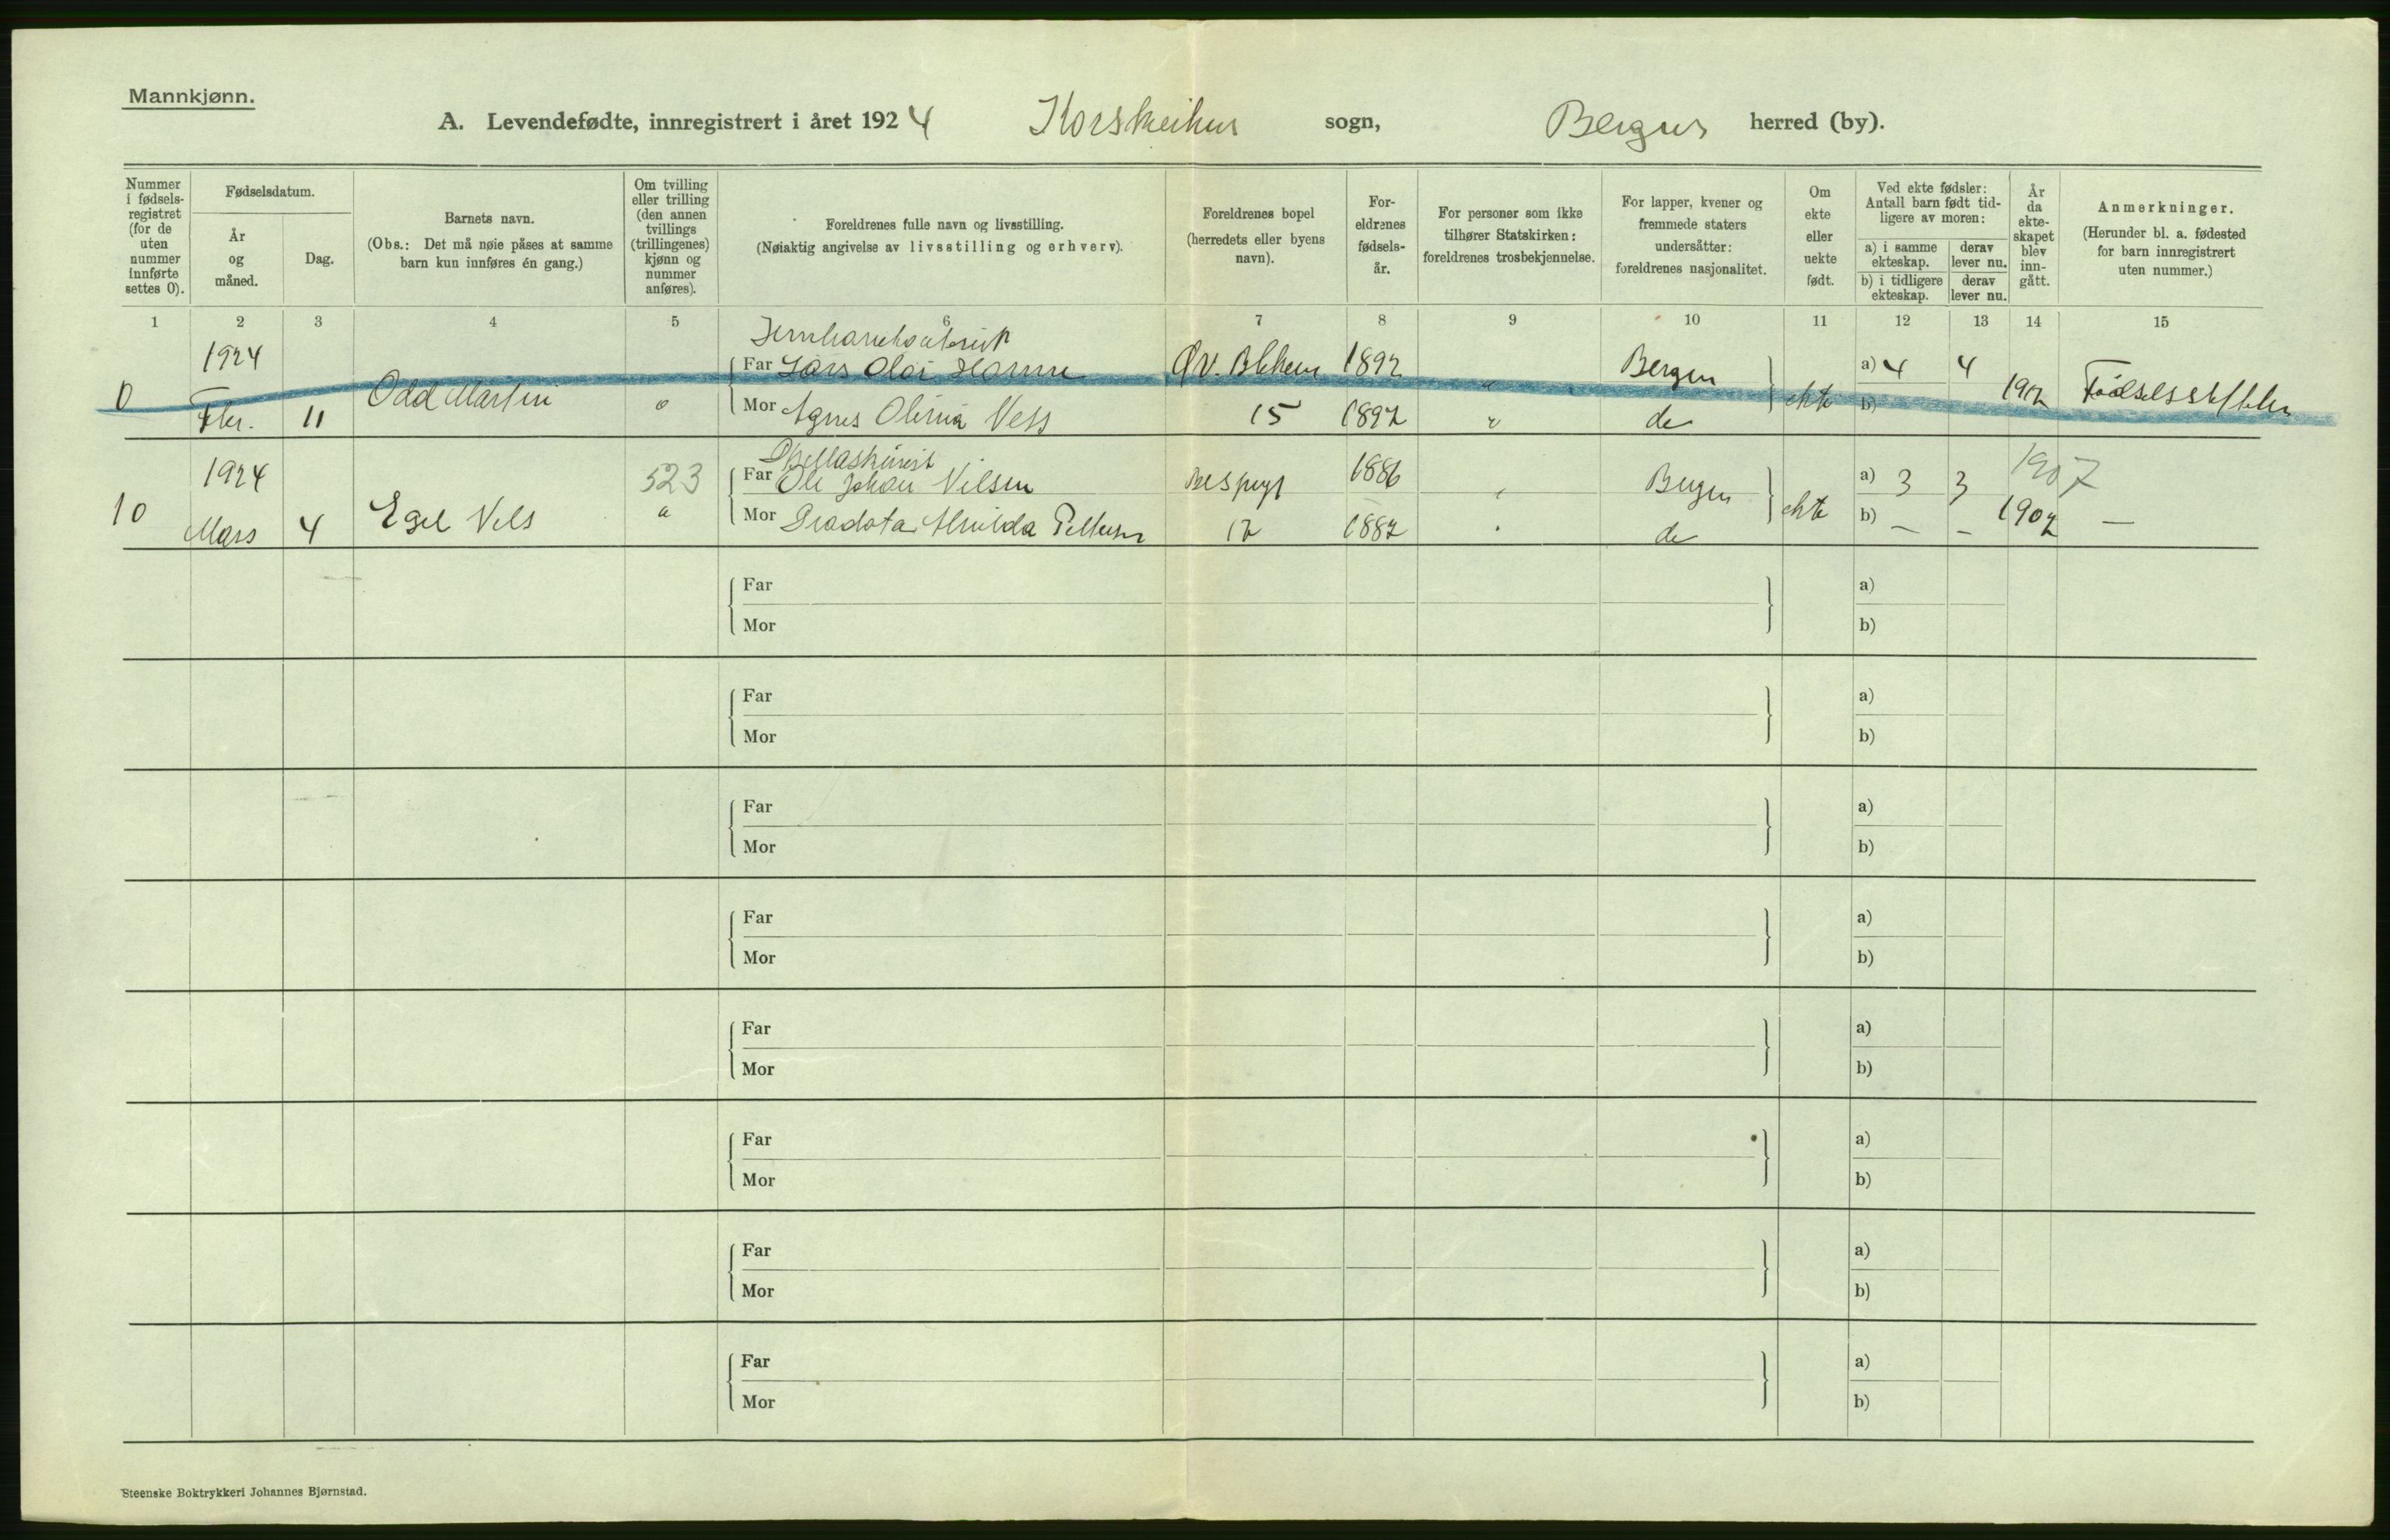 Mannkjønn.
A. Levendefødte, innregistrert i året 1924 Korskirken sogn, Bergens herred (by).
Nummer i fødsels-registret (for de uten nummer innførte settes 0).
Fødselsdatum.
År og måned.
Dag.
Barnets navn.
(Obs.: Det må nøie påses at samme barn kun innføres én gang.)
Om tvilling eller trilling (den annen tvillings (trillingenes) kjønn og nummer anføres).
Foreldrenes fulle navn og livsstilling.
(Nøiaktig angivelse av livsstilling og erhverv).
Foreldrenes bopel (herredets eller byens navn).
For-eldrenes fødsels-år.
For personer som ikke tilhører Statskirken: foreldrenes trosbekjennelse.
For lapper, kvener og fremmede staters undersåtter: foreldrenes nasjonalitet.
Om ekte eller uekte født.
Ved ekte fødsler: Antall barn født tid-ligere av moren:
a) i samme ekteskap. derav lever nu.
b) i tidligere ekteskap. derav lever nu.
År da ekte-skapet blev inn-gått.
Anmerkninger.
(Herunder bl. a. fødested for barn innregistrert uten nummer.)
1 2 3 4 5 6 7 8 9 10 11 12 13 14 15
0 1924 Odd Martin
Far Lars 1892 Bergen ekte a) 4 4 1912
Febr. 11 Mor Agnes Olivia Ness 15 1892 do b)
10 1924 Egil Nils 523
Far Ole Johan Nilsen 1886 Bergen ekte a) 3 3 1907
Mars 4 Mor Pettersen 12 1887 do b) — — 1907 —
Far a)
Mor b)
Far a)
Mor b)
Far a)
Mor b)
Far a)
Mor b)
Far a)
Mor b)
Far a)
Mor b)
Far a)
Mor b)
Far a)
Mor b)
Steenske Boktrykkeri Johannes Bjørnstad.